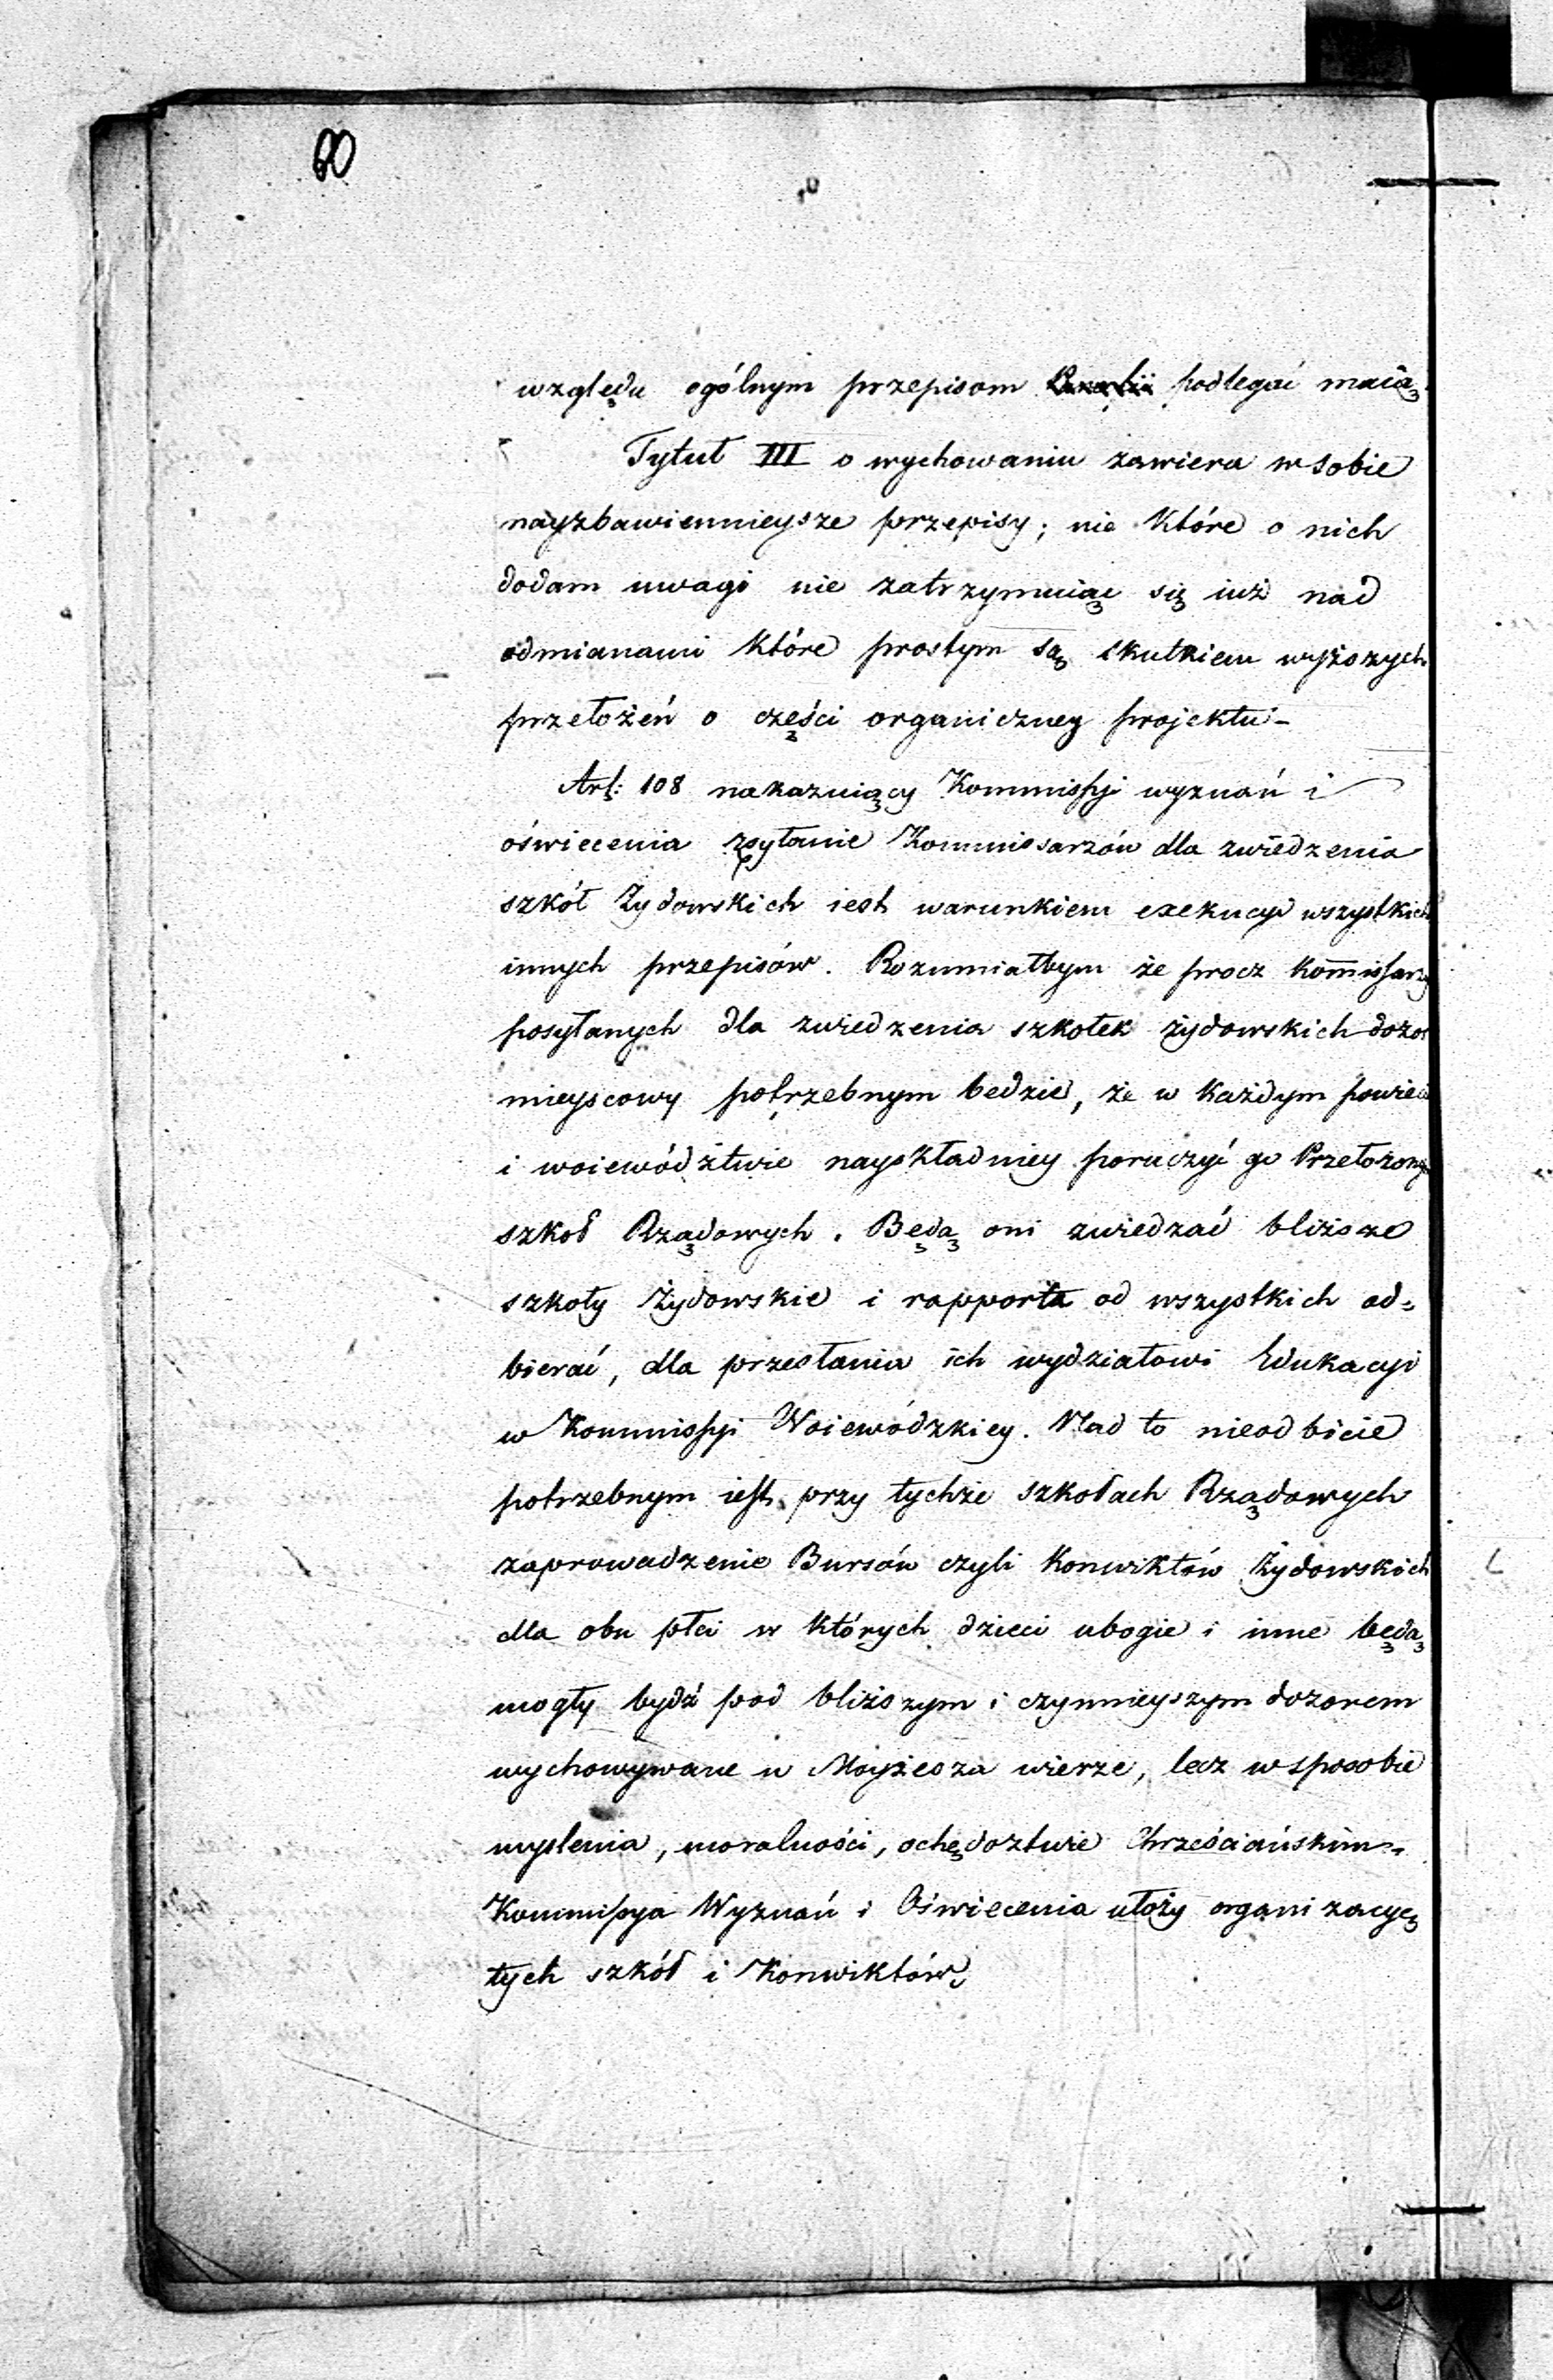 60
względu ogólnym przepisom podlegać maią.
Tytuł III o wychowaniu zawiera w sobie
nayzbawiennieysze przepisy; nie które o nich
dodam uwagi nie zatrzymuiąc się iuż nad
odmianami które prostym są skutkiem wyższych
przełożeń o części organiczney projektu -
Art: 108 nakazuiący Kommissyi wyznań i
oświecenia zsyłanie Kommissarzów dla zwiedzenia
szkół Żydowskich iest warunkiem exekucyi wszystkich
innych przepisów. Rozumiałbym że procz Kom̄issarzy
posyłanych dla zwiedzenia szkołek żydowskich dozor
mieyscowy potrzebnym bedzie, że w każdym powiecie
i woiewództwie nayskładniey poruczyć go Przełożonym
szkoł Rządowych. Będą oni zwiedzać bliższe
szkoły Żydowskie i rapporta od wszystkich od=
bierać, dla przesłania ich wydziałowi Edukacyi
w Kommissyi Woiewódzkiey. Nad to nieodbicie
potrzebnym iest przy tychże szkołach Rządowych
zaprowadzenie Bursów czyli Konwiktów Żydowskich
dla obu płci w których dzieci ubogie i inne będą
mogły bydź pod bliższym i czynnieyszym dozorem
wychowywane w Moyżesza wierze, lecz w sposobie
myslenia, moralności, ochędoztwie Chrześciańskim.
Kommissya Wyznań i Oświecenia ułoży organizacyę
tych szkół i Konwiktów,